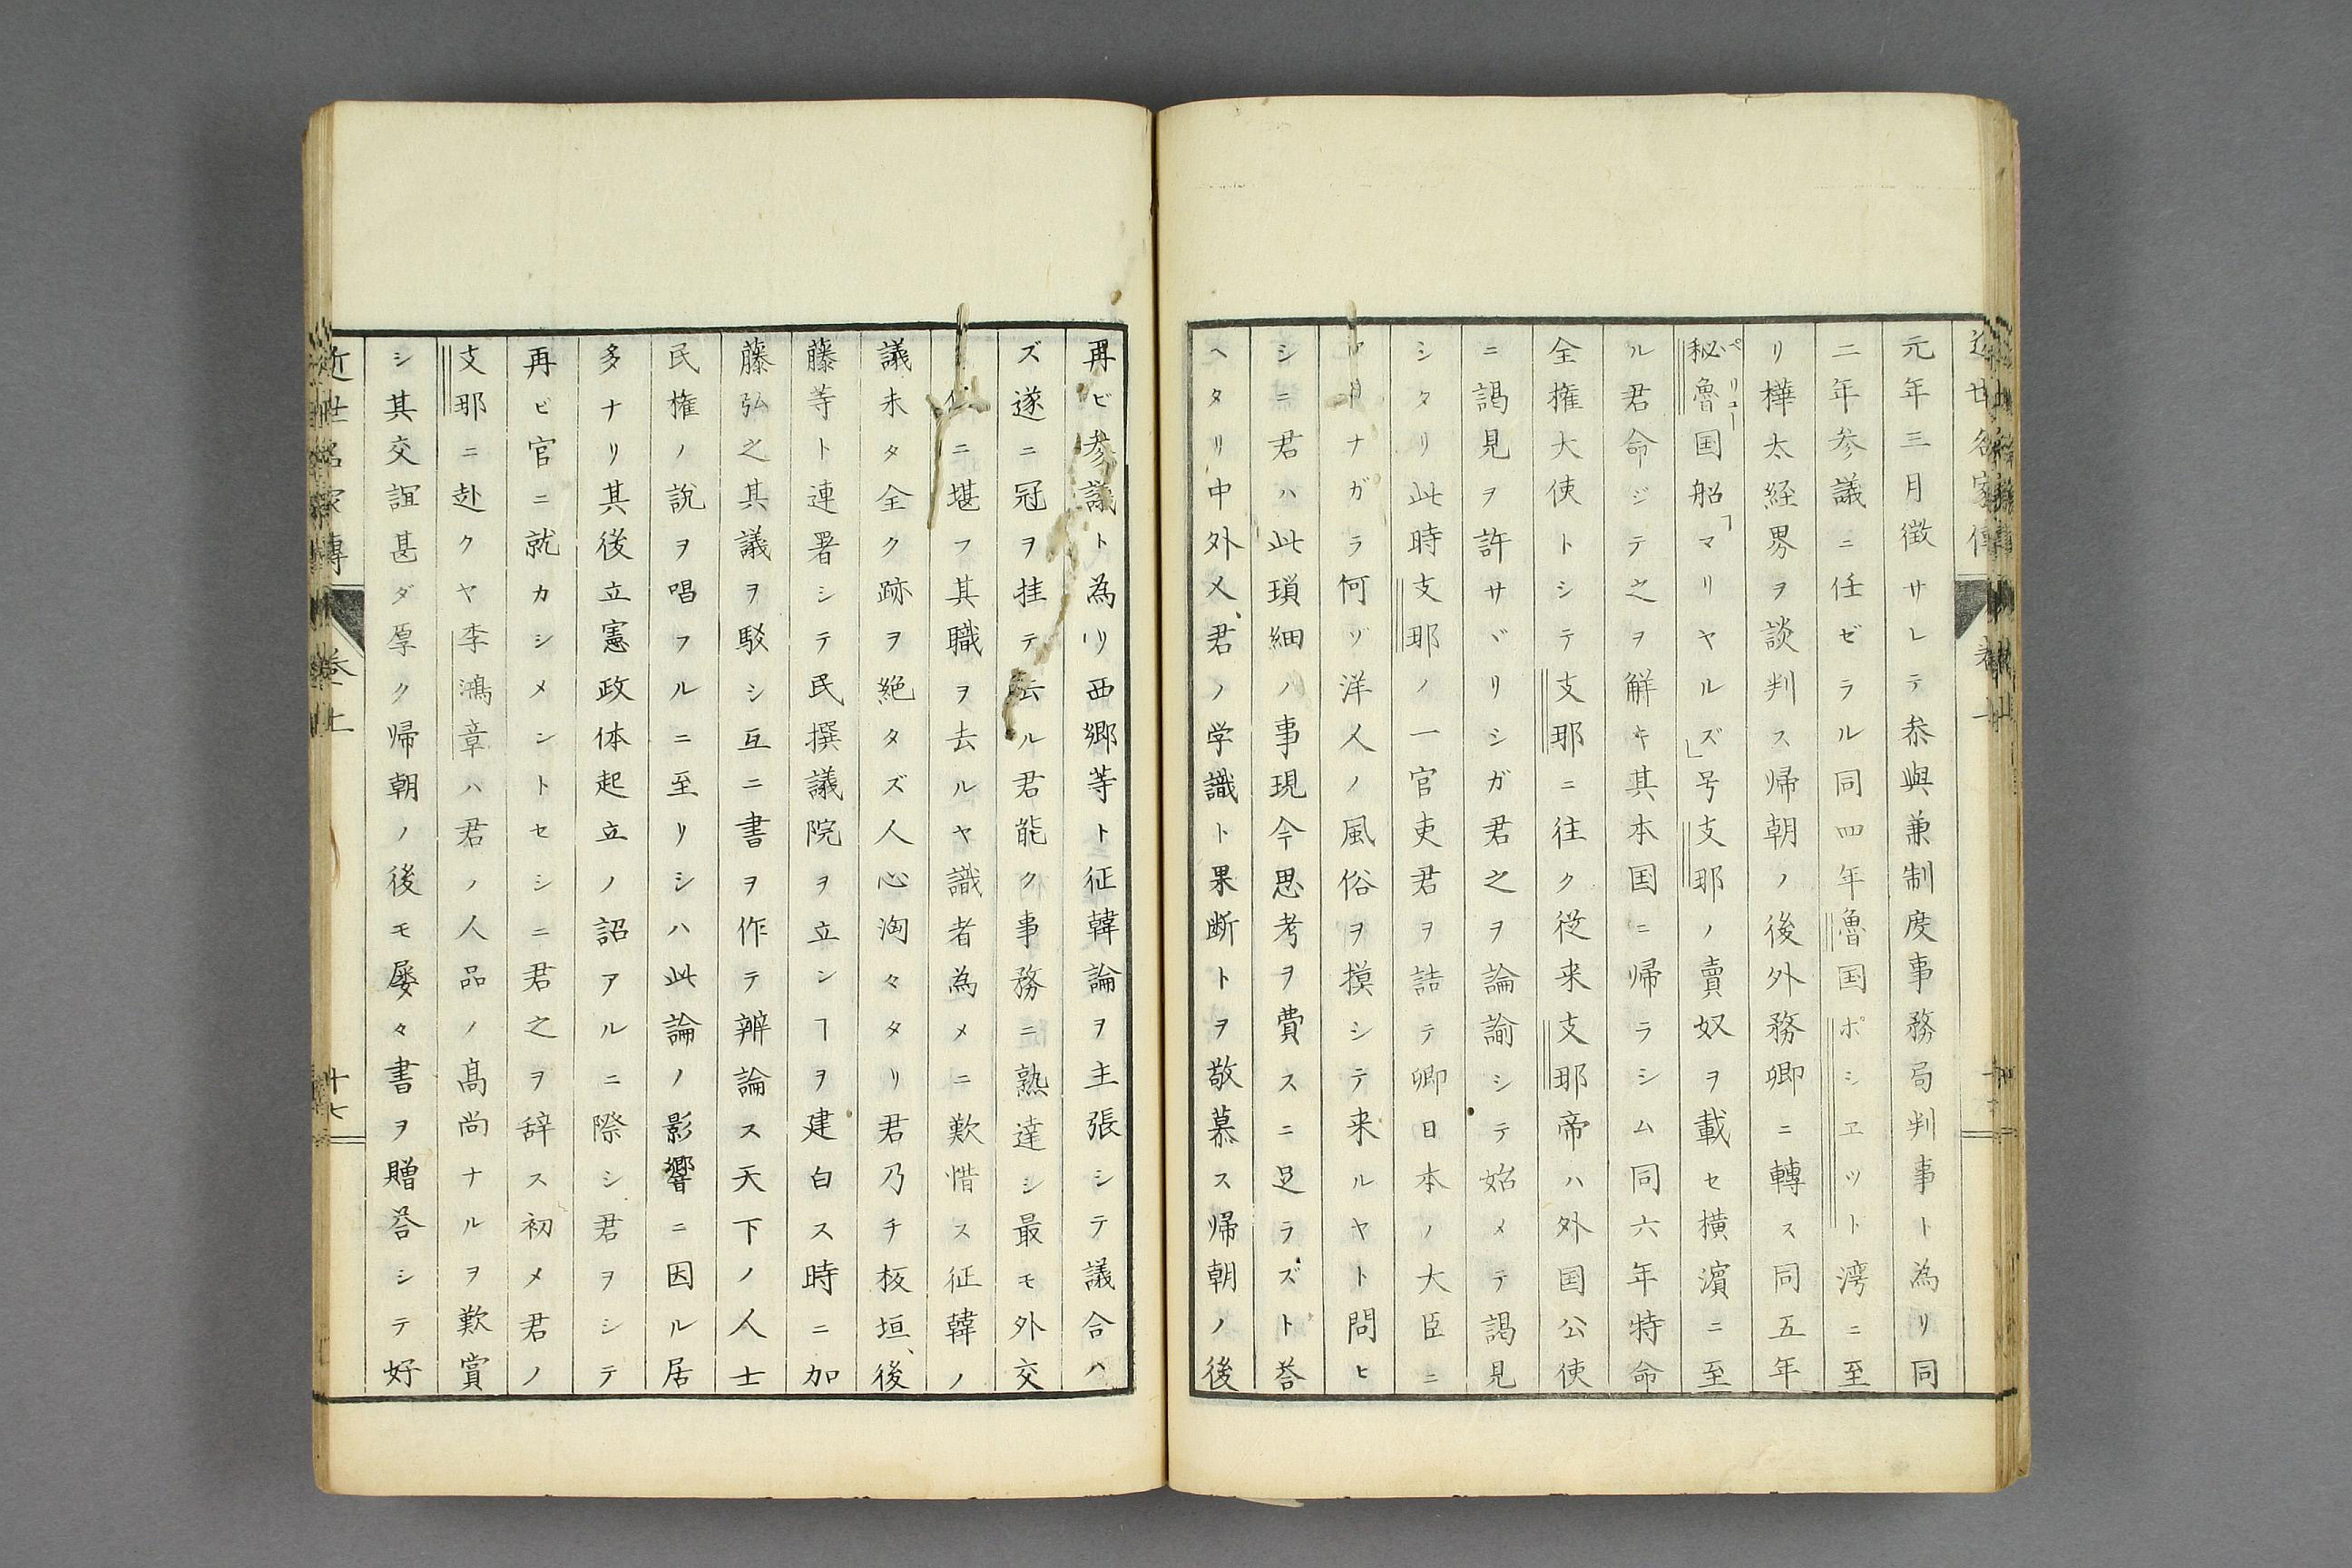 元年三月徴サレテ叅與兼制度事務局判事ト為リ同
二年参議ニ任ゼラル同四年魯国ポシエット湾ニ至
リ樺太経界ヲ談判ス帰朝ノ後外務卿ニ轉ス同五年
秘魯国船「マリヤルズ」号支那ノ賣奴ヲ載セ横濵ニ至
ペリュー
ル君命ジテ之ヲ解キ其本国ニ帰ラシム同六年特命
全権大使トシテ支那ニ往ク従来支那帝ハ外国公使
ニ謁見ヲ許サヾリシガ君之ヲ論諭シテ始メテ謁見
シタリ此時支那ノ一官吏君ヲ詰テ卿日本ノ大臣ニ
ナガラ何ゾ洋人ノ風俗ヲ摸シテ来ルヤト問ヒ
シニ君ハ此瑣細ノ事現今思考ヲ費スニ足ラズト荅
ヘタリ中外人、君ノ学識ト果断トヲ敬慕ス帰朝ノ後
再ビ参議ト為リ西郷等ト征韓論ヲ主張シテ議合ハ
ズ遂ニ冠ヲ挂テ去ル君能ク事務ニ熟達シ最モ外交
ニ堪フ其職ヲ去ルヤ識者為メニ歎惜ス征韓ノ
議未タ全ク跡ヲ絶タズ人心洶々タリ君乃チ板垣、後
藤等ト連署シテ民撰議院ヲ立ンヿヲ建白ス時ニ加
藤弘之其議ヲ駁シ互ニ書ヲ作テ辨論ス天下ノ人士
民権ノ説ヲ唱フルニ至リシハ此論ノ影響ニ因ル居
多ナリ其後立憲政体起立ノ詔アルニ際シ君ヲシテ
再ビ官ニ就カシメントセシニ君之ヲ辞ス初メ君ノ
支那ニ赴クヤ李鴻章ハ君ノ人品ノ髙尚ナルヲ歎賞
シ其交誼甚ダ厚ク帰朝ノ後モ屡々書ヲ贈荅シテ好
近世名家傳 巻上 十七